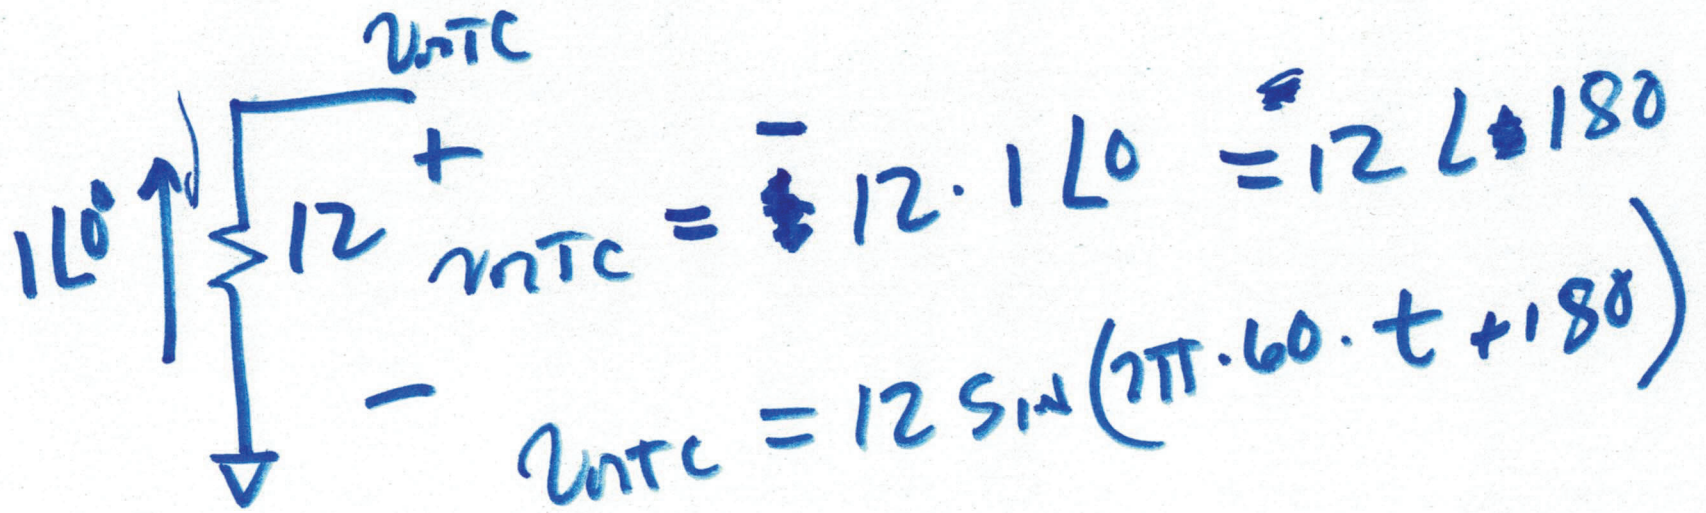 VmTC
+
1∠0° 12 VmTC = - 12 · 1∠0 = 12 ∠180
-
VmTC = 12 SIN(2π·60·t+180)